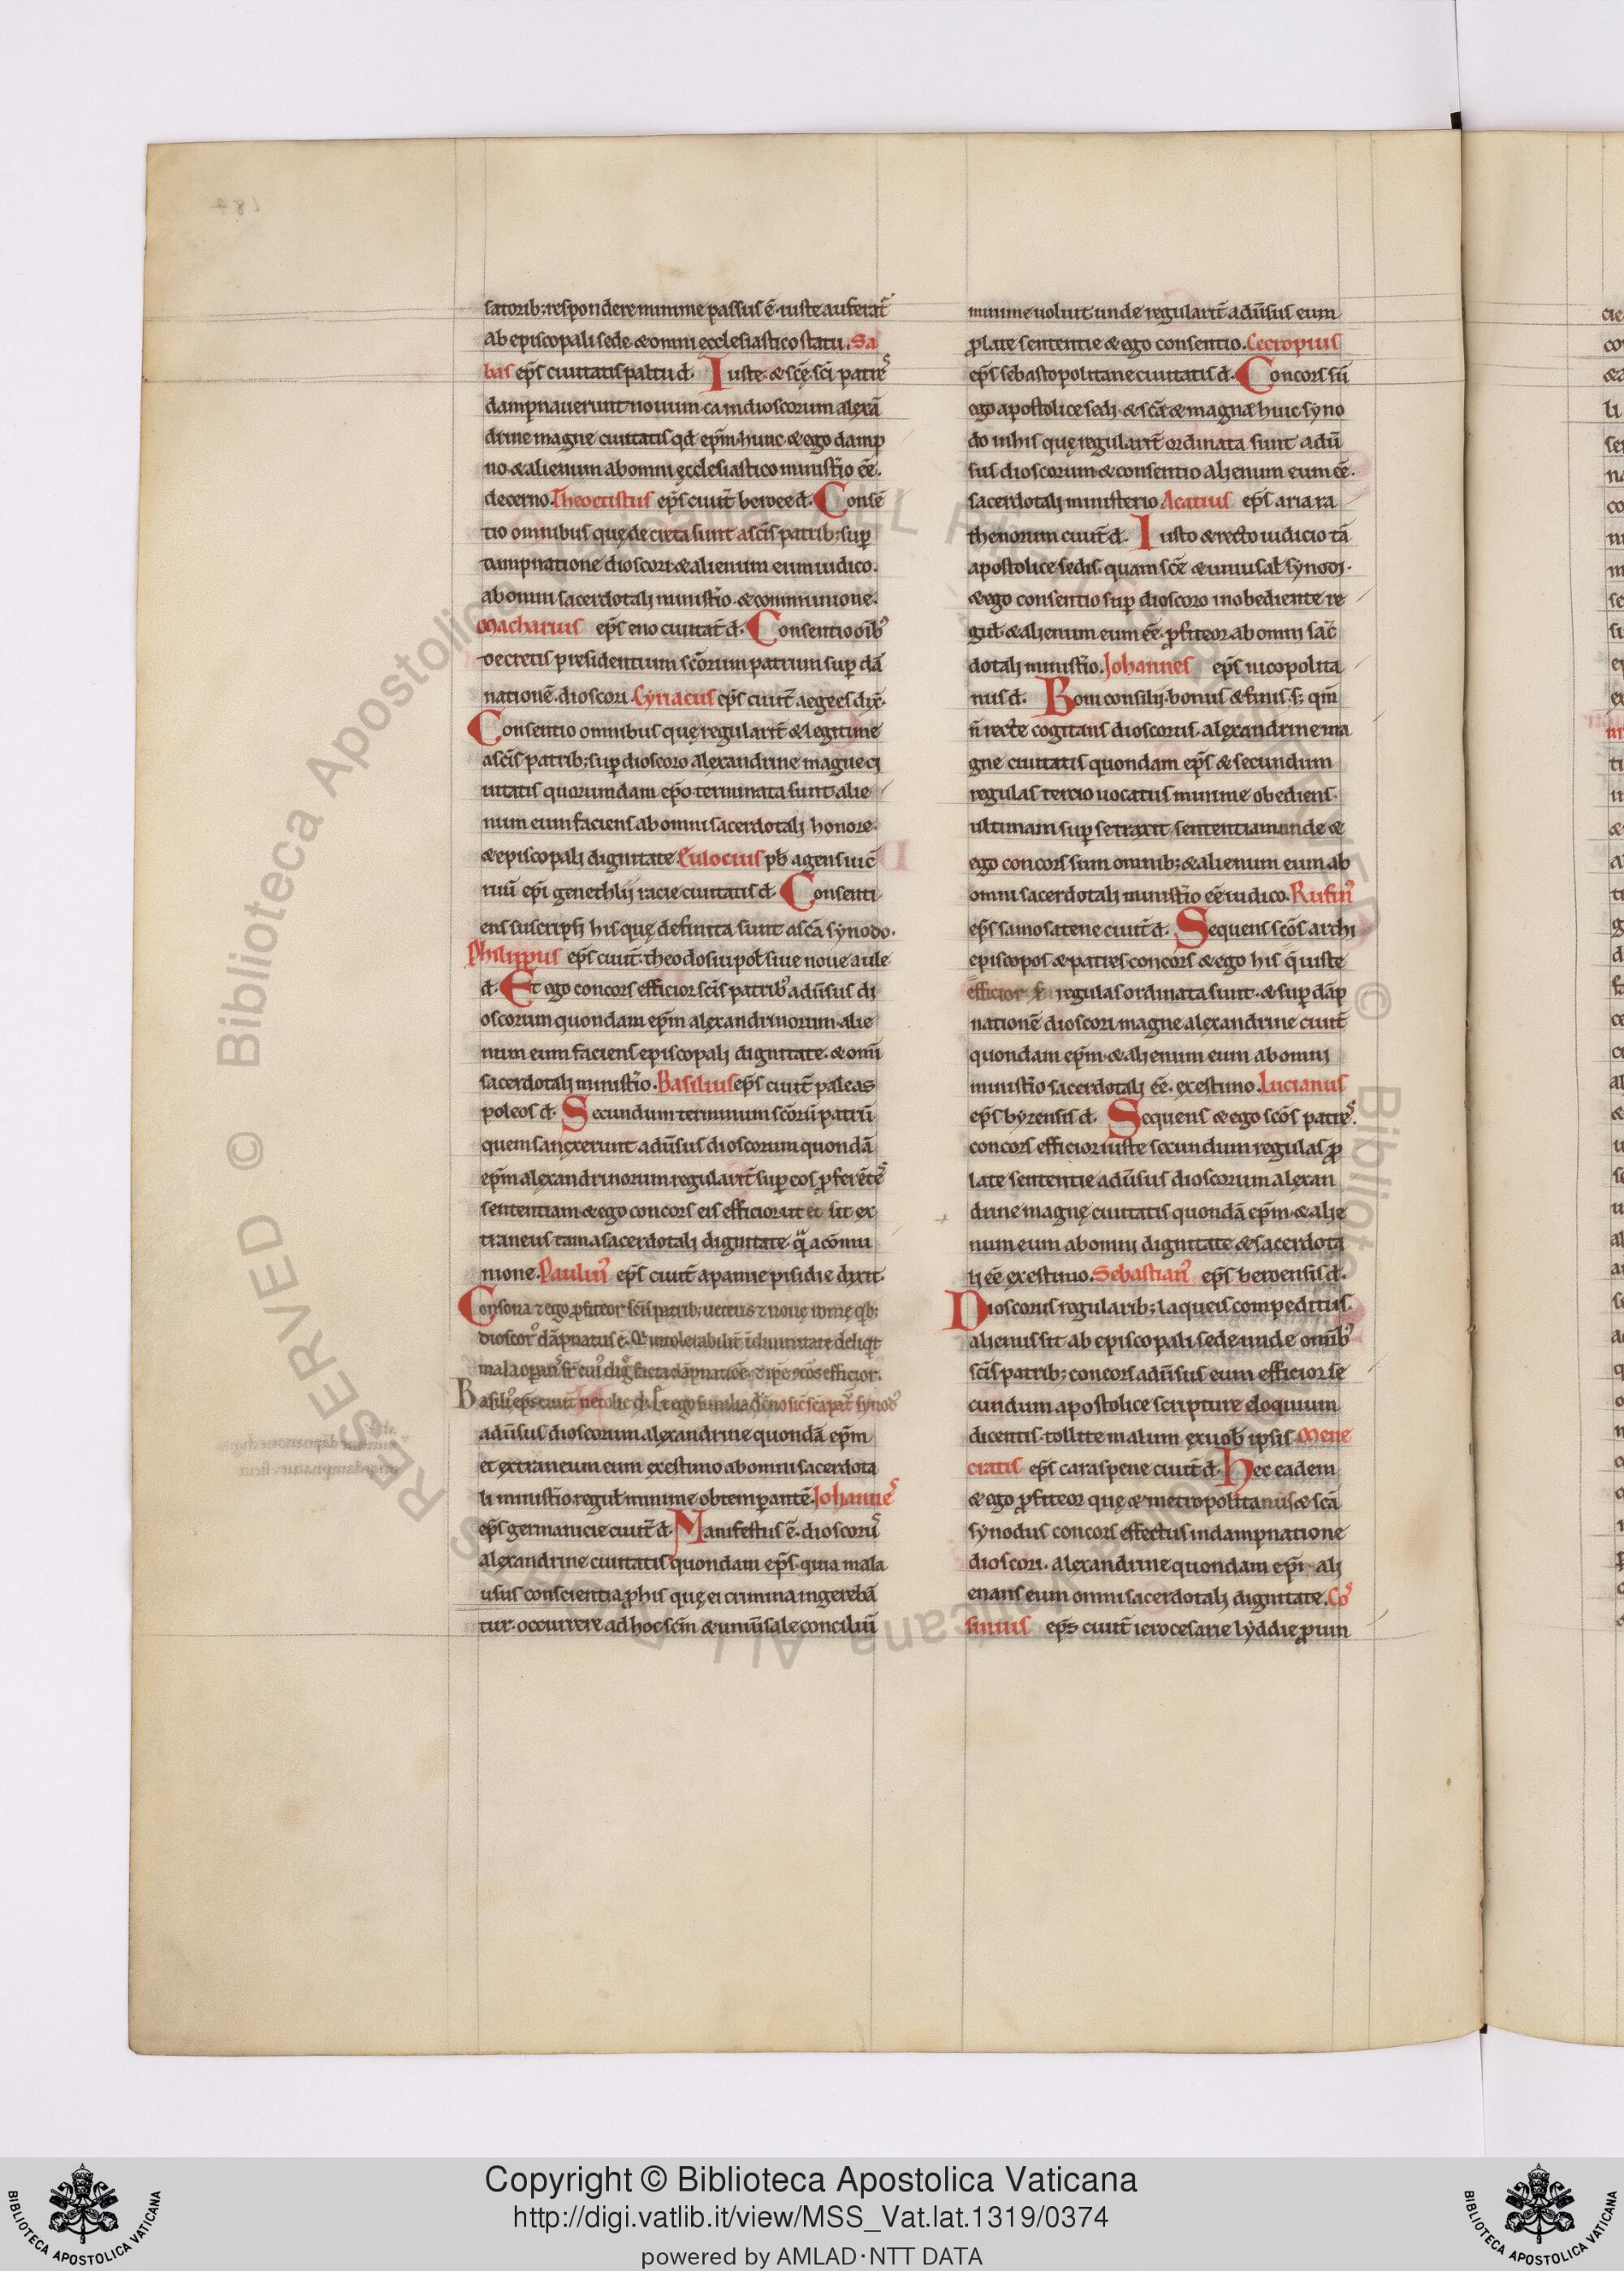 satorib; respondere minime passus ē iuste auferat᷑
ab episcopali sede & omni ecclesiastico statu. Sa
bas ep̄s ciuitatis paltu d̄. Iuste & scē sc̄i patres
dampnauerunt nouum cain dioscorum alexā
drine magne ciuitatis qd̄ ep̄m. hunc & ego damp
no & alienum ab omni ęcclesiastico minist̄io eē.
decerno. Theoctistus ep̄s ciuit̄ beroee d̄. Consē
tio omnibus quę decreta sunt a sc̄is patrib; suꝑ
dampnatione dioscori. & alienum eum iudico.
ab omni sacerdotali minist̄io. & communione.
Macharius ep̄s eno ciuitat̄ d̄. Consentio oīb᷒
decretis presidentium sc̄orum patrum suꝑ dā
nationē. dioscori. Cyriacus ep̄s ciuit̄ aegees dix̄.
Consentio omnibus quę regularit̄ & legitime
a sc̄is patrib; suꝑ dioscoro alexandrine magne ci
uitatis quorumdam ep̄o terminata sunt alie
num eum faciens ab omni sacerdotali honore.
& episcopali dignitate. Eulocius pb̄ agens uic̄
riuū ep̄i genethlii racie ciuitatis d̄. Consenti
ens suscripsi his quę definita sunt a sc̄a synodo.
Philippus ep̄s ciuit̄. theodosiu pol̄ siue noue aule
d̄. Et ego concors efficior sc̄is patrib᷒ adūsus di
oscorum quondam ep̄m alexandrinorum. alie
num eum faciens episcopali dignitate. & omī
sacerdotali minist̄io. Basilius ep̄s ciuit̄ paleas
poleos d̄. Secundum terminum sc̄orū patrū
quem sanxerunt adūsus dioscorum quondā
ep̄m alexandrinorum regularit̄ suꝑ eos ꝓferētes
sententiam. & ego concors eis efficior ut et sit ex
traneus tam a sacerdotali dignitate. quā a cōmu
nione. Paulin᷒ ep̄s ciuit̄ apamie pisidie dixit.
Consona & ego ꝓfiteor sc̄is patrib; ueteris & nouę romę qb;
dioscor᷒ dāpnatus ē.
Basili᷒ ep̄s ciuit̄
adūsus dioscorum alexandrine quondā ep̄m
et extraneum eum existimo ab omni sacerdota
li minist̄io. regul̄ minime obtemꝑantē. Johannes
ep̄s germanicie ciuit̄ d̄. Manifestus ē dioscorus
alexandrine ciuitatis quondam ep̄s. quia mala
usus conscientia ꝓ his quę ei crimina ingerebā
tur. occurrere ad hoc sc̄m & uniūsale conciliū
minime uoluit unde regularit̄ adūsus eum
ꝓlate sententie & ego consentio. Cecropius
ep̄s sebastopolitane ciuitatis d̄. Concors sū
ego apostolice sedi. & sc̄a & magnæ huic syno
do in his quę regularit̄ ordinata sunt adū
sus dioscorum & consentio alienum eum eē.
sacerdotali ministerio. Acatius ep̄s ariara
thenorum ciuit̄ d̄. Iusto & recto iudicio tā
apostolice sedis. quam scē & uniusal̄ synodi.
& ego consentio suꝑ dioscoro inobediente re
gul̄. & alienum eum eē ꝓfiteor ab omni sac̄
dotali minist̄io. Johannes ep̄s nicopolita
nus d̄. Boni consilii. bonus & finis. s; qm̄
n̄ recte cogitans dioscorus. alexandrine ma
gne ciuitatis quondam ep̄s & secundum
regulas tercio uocatus minime obediens.
ultimam suꝑ se traxit sententiam unde &
ego concors sum omnib; & alienum eum ab
omni sacerdotali minist̄io eē iudico. Rufin᷒
ep̄s samosatene ciuit̄ d̄. Sequens sc̄os archi
episcopos & patres concors & ego his q̄ iuste
efficior regulas ordinata sunt. & suꝑ dāp
nationē dioscori magne alexandrine ciuit̄
quondam ep̄m. & alienum eum ab omni
minist̄io sacerdotali eē. existimo. Lucianus
ep̄s byzensis d̄. Sequens & ego sc̄os patres.
concors efficior iuste secundum regulas ꝓ
late sententie adūsus dioscorum alexan
drine magnę ciuitatis quondā ep̄m. & alie
num eum ab omni dignitate & sacerdota
li eē existimo. Sebastian᷒ ep̄s beroensis d̄.
Dioscorus regularib; laqueis compeditus.
alienus sit ab episcopali sede. unde omib᷒
sc̄is patrib; concors adūsus eum efficior se
cundum apostolice scripture eloquium
dicentis. tollite malum ex uob̄ ipsis. Mene
cratis ep̄s caraspene ciuit̄ d̄. Hec eadem
& ego ꝓfiteor quę & metropolitanus & sc̄a
synodus concors effectus in dampnatione
dioscori. alexandrine quondam ep̄i. ali
enans eum omni sacerdotali dignitate. Co
sinius ep̄s ciuit̄ ierocesarie lyddie ꝓuin
Copyright © Biblioteca Apostolica Vaticana
http://digi.vatlib.it/view/MSS_Vat.lat.1319/0374
powered by AMLAD·NTT DATA